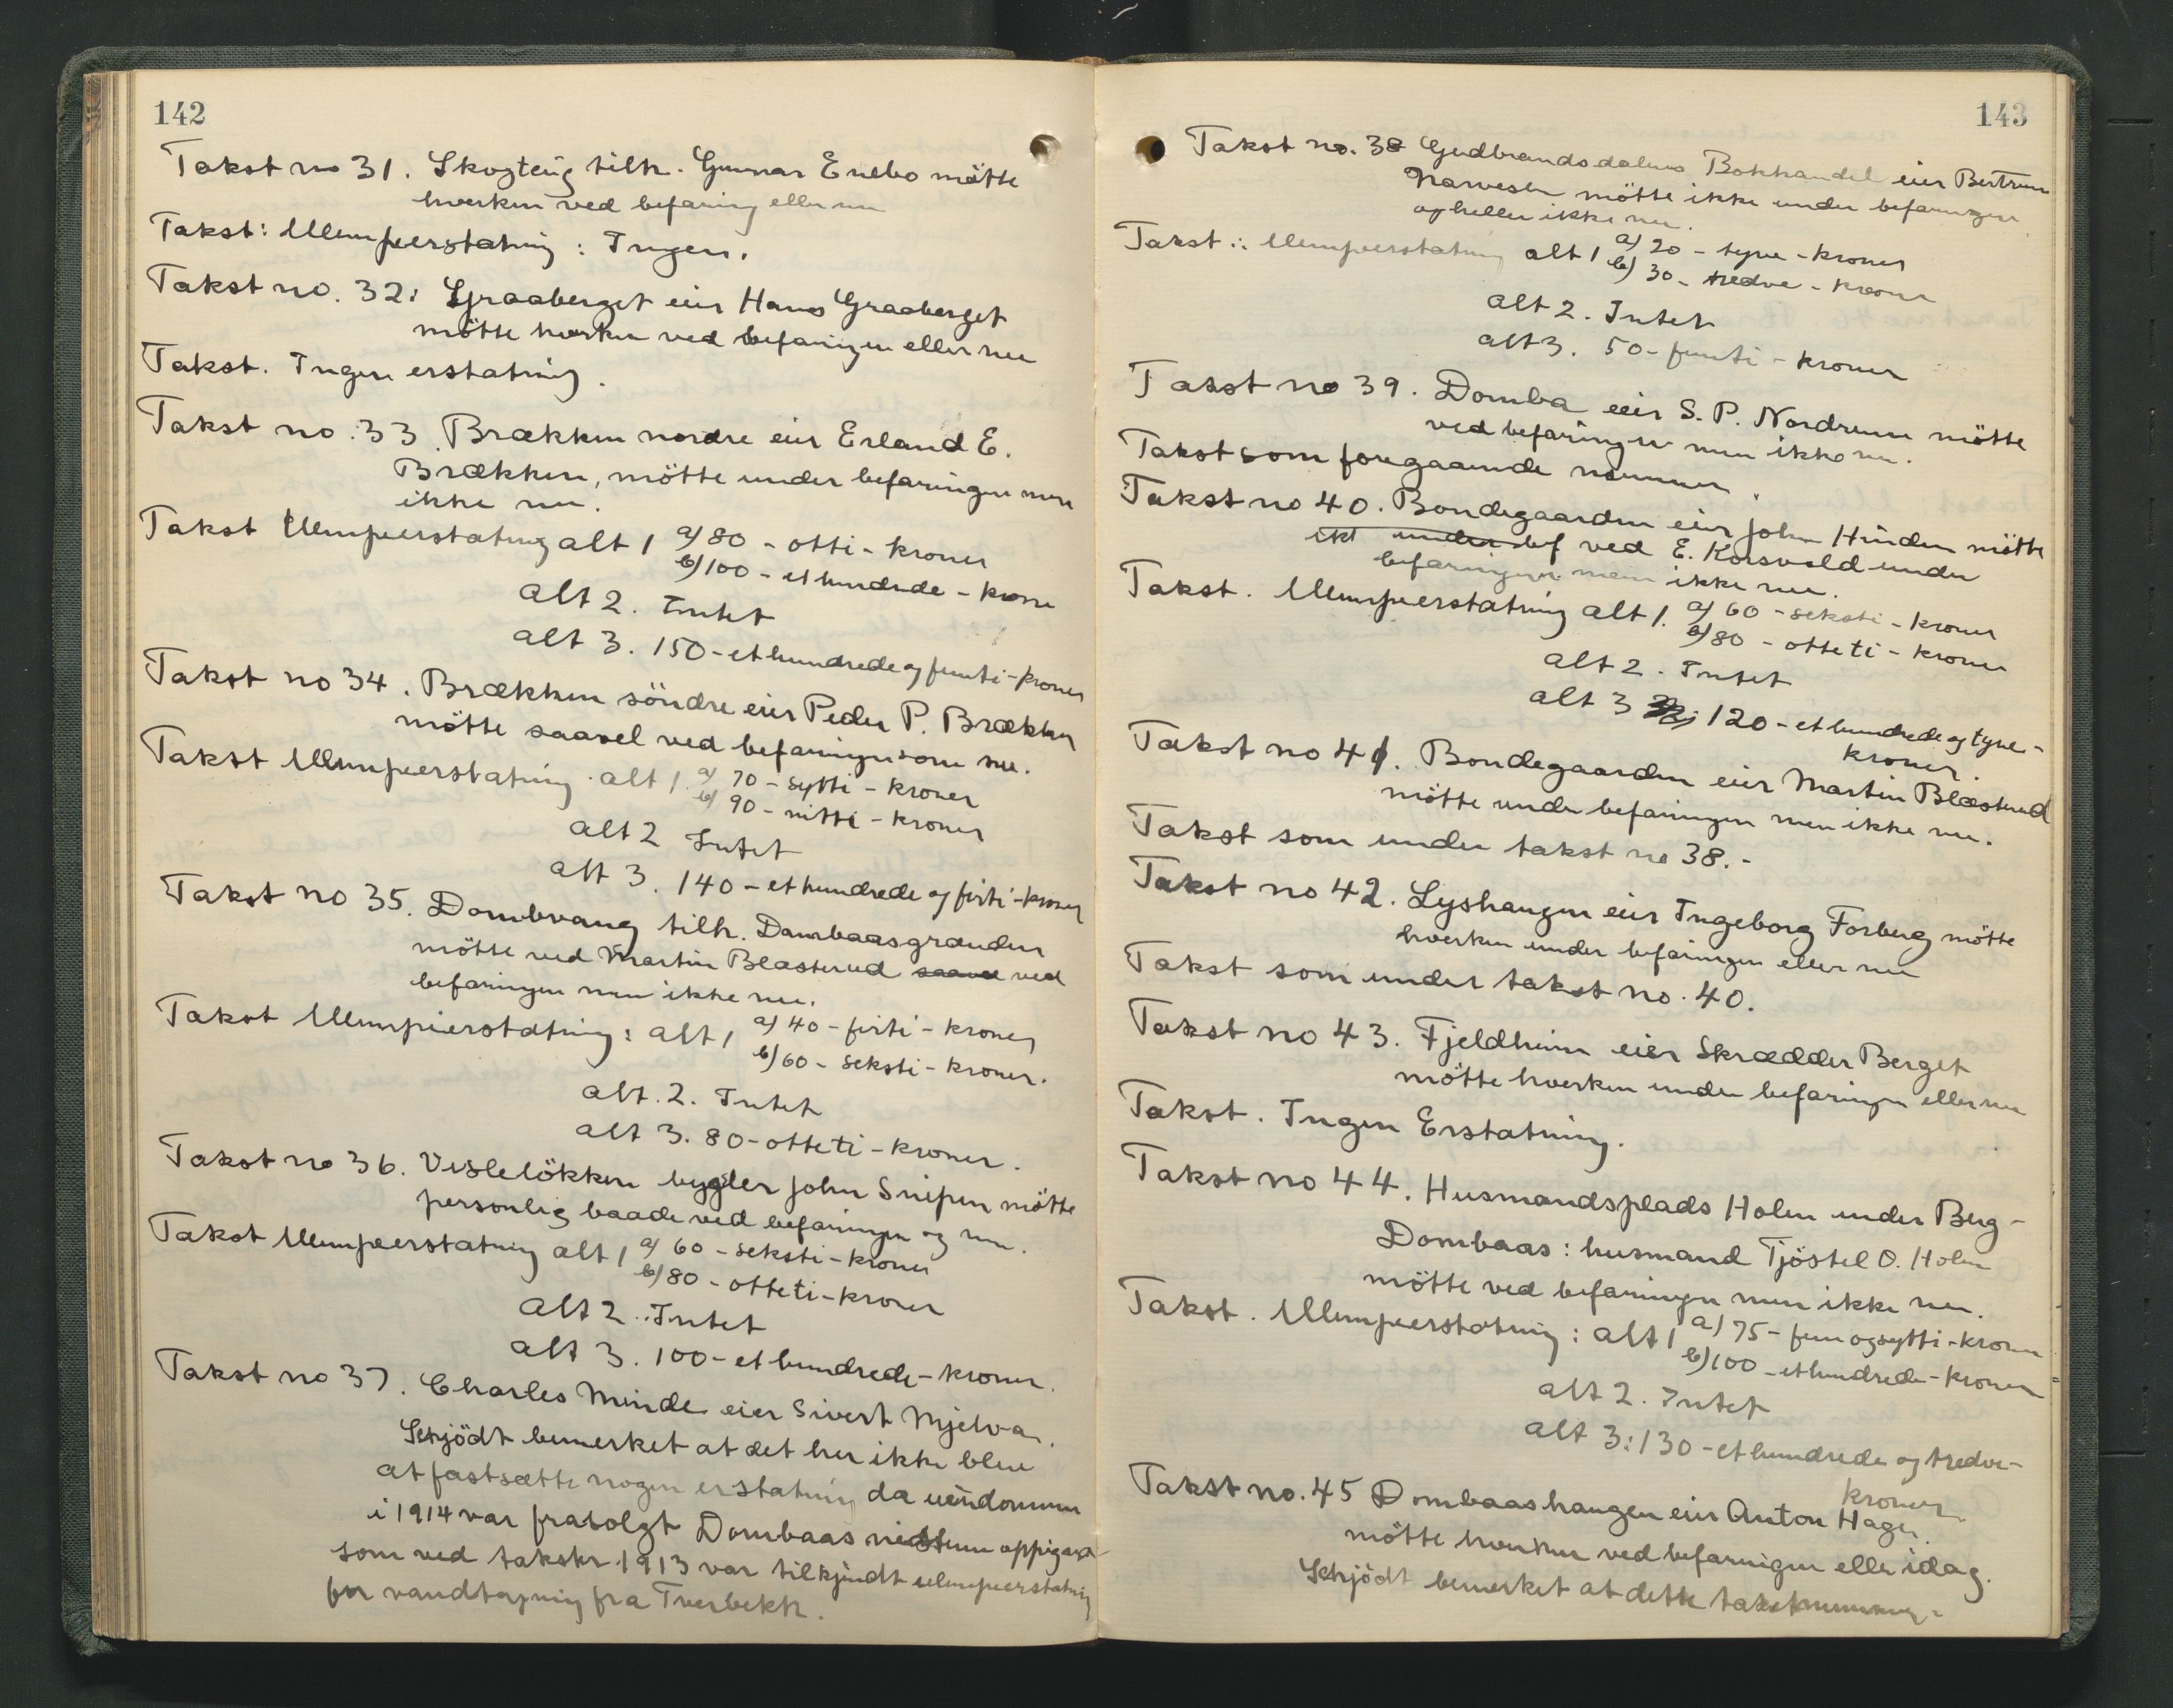 142
Takst no 31. Skogteig tilh. Gunnar Enebo mötte
hverken ved befaring eller nu
Takst: Ulempeerstatning: Ingen.
Takst no. 32: Graaberget eier Hans Graaberget
mötte hverken ved befaringen eller nu
Takst. Ingen erstatning.
Takst no. 33. Brækken nordre eier Erland E.
Brækken, mötte under befaringen men
ikke nu.
Takst Ulempeerstatning alt 1 a) 80 - otti - kroner
b) 100 - et hundrede - krone
alt 2. Intet
alt 3. 150 - et hundrede og femti - kroner
Takst no 34. Brækken söndre eier Peder P. Brækken
mötte saavel ved befaringen som nu.
Takst Ulempeerstatning. alt 1. a) 70 - sytti - kroner
b) 90 - nitti - kroner
alt 2 Intet
alt 3. 140 - et hundrede og firti - kroner
Takst no 35. Dombvang tilh. Dombaasgrænden
mötte ved Martin Blæsterud saavel ved
befaringen men ikke nu.
Takst Ulempeerstatning: alt 1 a) 40 - firti - kroner
b) 60 - seksti - kroner.
alt. 2. Intet
alt 3. 80 - otteti - kroner.
Takst no 36. Vesletökken bygsler John Snipen mötte
personlig baade ved befaringen og nu.
Takst Ulempeerstatning alt 1 a) 60 - seksti - kroner
b) 80 - otteti - kroner
alt 2. Intet
alt 3. 100 - et hundrede - kroner.
Takst no 37. Charles Minde eier Sivert Mjelva.
Schjödt bemerket at det her ikke blev
at fastsætte nogen erstatning da eiendommen
i 1914 var frasolgt Dombaas nistuen oppigard
som ved takster 1913 var tilkjendt ulempeerstatning
for vandtapning fra Tverbekk.
143
Takst no. 38 Gudbrandsdalens Bokhandel eier Bertrum
Narvesen mötte ikke under befaringen
og heller ikke nu.
Takst: Ulempeerstatning alt 1 a) 20 - tyve - kroner
b) 30 - tredve - kroner
alt 2. Intet
alt 3. 50 - femti - kroner
Takst no 39. Domba eier S. P. Nordrum mötte
ved befaringen men ikke nu.
Takst som foregaaende nummer.
Takst no 40. Bondegaarden eier John Hinden mötte
ikt under bef ved E. Korsvold under
befaringen men ikke nu.
Takst. Ulempeerstatning alt 1. a) 60 - seksti - kroner
b) 80 - otteti - kroner
alt 2. Intet
alt 3 120 - et hundrede og tyve -
kroner.
Takst no 41. Bondegaarden eier Martin Blæsterud
mötte under befaringen men ikke nu.
Takst som under takst no 38. -
Takst no 42. Lyshaugen eier Ingeborg Forberg mötte
hverken under befaringen eller nu
Takst som under takst no. 40.
Takst no 43. Fjeldheim eier Skrædder Berget
mötte hverken under befaringen eller nu
Takst. Ingen Erstatning.
Takst no 44. Husmandsplads Holen under Berg -
Dombaas: husmand Tjöstel O. Holen
mötte ved befaringen men ikke nu.
Takst. Ulempeerstatning: alt 1 a) 75 - fem og sytti - kroner
b) 100 - et hundrede - kroner
alt 2. Intet
alt 3: 130 - et hundrede og tredve -
kroner
Takst no. 45 Dombaashaugen eier Anton Hagen
mötte hverken ved befaringen eller idag.
Schjödt bemerket at dette takstnummer